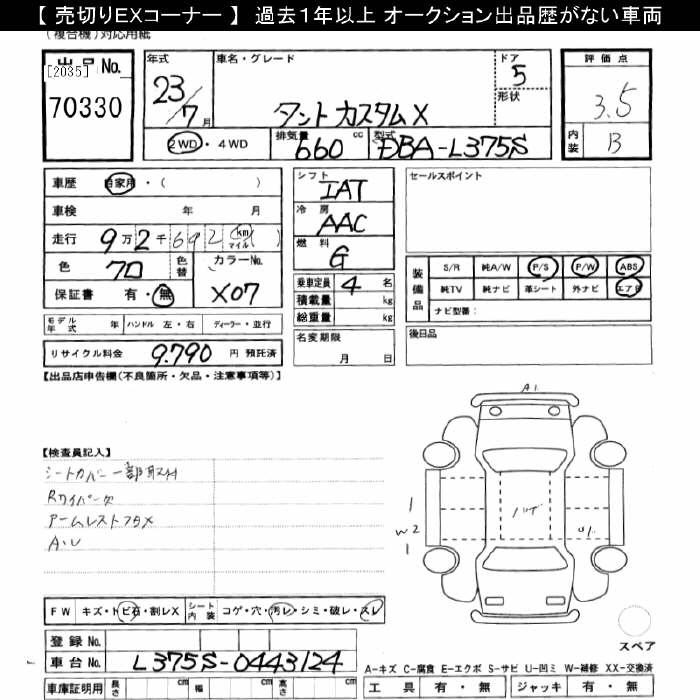 【 売切りEXコーナー 】 過去1年以上 オークション出品歴がない車両
(複合機)対応用紙
出品No. [2035]
70330
年式
23/7月
車名・グレード
タントカスタムX
ドア
5
形状
評価点
3.5
内装
B
2WD・4WD
排気量 660 cc
型式 DBA-L375S
車歴 自家用・( )
車検 年 月
走行 9万2千692 km マイル ( )
色 クロ 色替 カラーNo. X07
保証書 有・無
モデル年式 年 ハンドル 左・右 ディーラー・並行
リサイクル料金 9.790 円 預託済
シフト IAT
冷房 AAC
燃料 G
乗車定員 4 名
積載量 kg
総重量 kg
名変期限 月 日
セールスポイント
装備品 S/R 純A/W P/S P/W ABS
純TV 純ナビ 革シート 外ナビ エアB
ナビ型番:
後日品
【出品店申告欄(不良箇所・欠品・注意事項等)】
【検査員記入】
シートカバー一部取付
Rワイパー欠
アームレストフタX
A・U
A1
1
W2
1
U1
FW キズ・トビ石・割レX シート内装 コゲ・穴・汚レ・シミ・破レ・スレ
登録No.
車台No. L375S-0443124
車庫証明用 長さ cm 幅 cm 高さ cm
スペア
A-キズ C-腐食 E-エクボ S-サビ U-凹ミ W-補修 XX-交換済
工具 有・無 ジャッキ 有・無